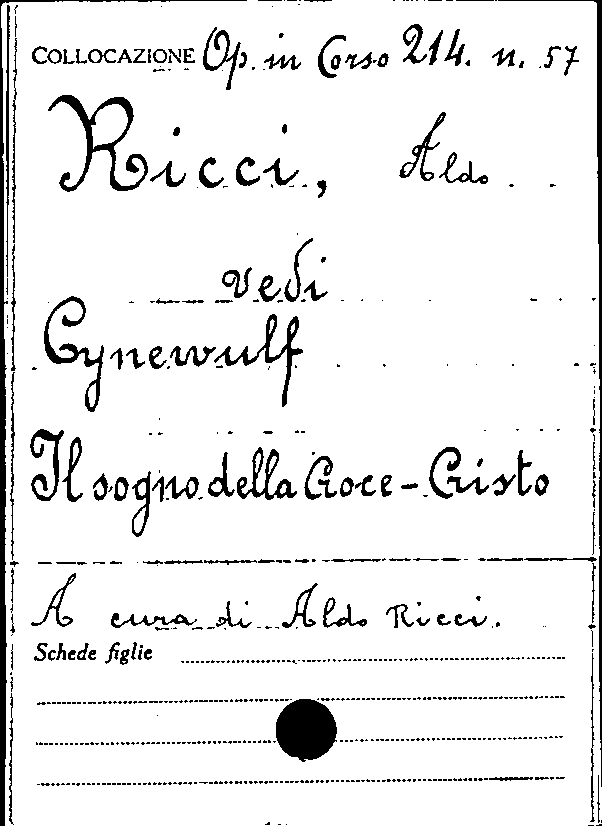 COLLOCAZIONE Op. in Corso 214. n. 57
Ricci, Aldo
vedi
Cynewulf
Il sogno della Croce - Cristo
A cura di Aldo Ricci.
Schede figlie